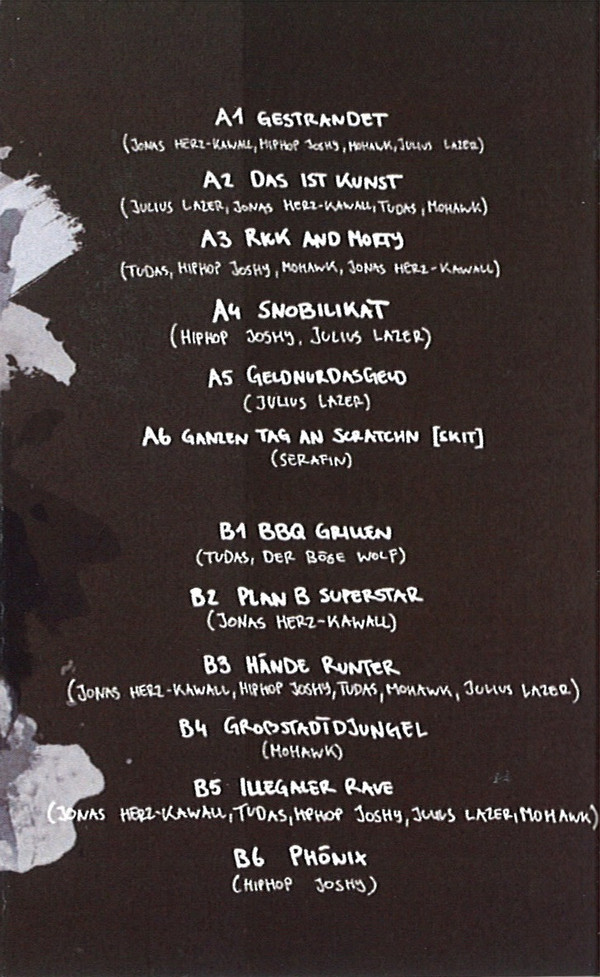 A1 GESTRANDET
(JONAS HERZ-KAWALL, HIPHOP JOSHY, MOHAWK, JULIUS LAZER)
A2 DAS IST KUNST
(JULIUS LAZER, JONAS HERZ-KAWALL, TUDAS, MOHAWK)
A3 RICK AND MORTY
(TUDAS, HIPHOP JOSHY, MOHAWK, JONAS HERZ-KAWALL)
A4 SNOBILIKAT
(HIPHOP JOSHY, JULIUS LAZER)
A5 GELDNURDASGELD
(JULIUS LAZER)
A6 GANZEN TAG AN SCRATCHN [SKIT]
(SERAFIN)
B1 BBQ GRILLEN
(TUDAS, DER BÖSE WOLF)
B2 PLAN B SUPERSTAR
(JONAS HERZ-KAWALL)
B3 HÄNDE RUNTER
(JONAS HERZ-KAWALL, HIPHOP JOSHY, TUDAS, MOHAWK, JULIUS LAZER)
B4 GROßSTADTDJUNGEL
(MOHAWK)
B5 ILLEGALER RAVE
(JONAS HERZ-KAWALL, TUDAS, HIPHOP JOSHY, JULIUS LAZER, MOHAWK)
B6 PHÖNIX
(HIPHOP JOSHY)